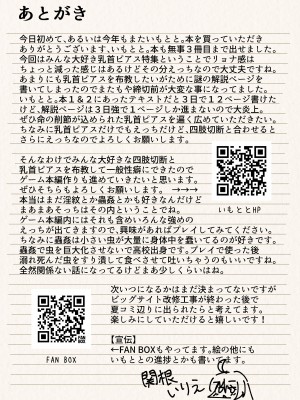 あとがき
今日初めて、あるいは今年もまたいもとと。本を買っていただき
ありがとうございます、いもとと。本も無事３冊目まで出せました。
今回はみんな大好き乳首ピアス特集ということでリョナ感は
ちょっと減った感じはあるけどその分えっちなので大丈夫ですね。
あまりにも乳首ピアスを布教したいがために謎の解説ページを
書いてしまったのでまたもや締切前が大変な事になってました。
いもとと。本１＆２にあったテキストだと３日で１２ページ書けた
けど、解説ページは３日強で１ページしか進まないので大炎上。
ぜひ命の削節が込められた乳首ピアスを遍く広めていただきたい。
ちなみに乳首ピアスだけでもえっちだけど、四肢切断と合わせると
さらにえっちなのでよろしくお願いします。
そんなわけでみんな大好きな四肢切断と
乳首ピアスを布教して一般性癖にできたので
ゲーム本編作りも進めていきたいと思います。
ぜひそちらもよろしくお願いします。　→→→
本当はまだ淫紋とか蟲姦とかも好きなんだけど
まあまあそっちはその内ということでね。
いもととHP
ゲーム本編内にはそれも含めいろんな強めの
えっちが出てきますので、興味があればプレイしてみてください。
ちなみに蟲姦は小さい虫が大量に身体中を蠢いてるのが好きです。
蟲姦で虫を巨大化させないで高校出身です。プレイで使った後
溺れ死んだ虫をすり潰して食べさせて吐いちゃうのもいいですね。
全然関係ない話になってるけどまあ少しくらいはね。
次いつになるかはまだ決まってないですが
ビッグサイト改修工事が終わった後で
夏コミ辺りに出せられたらと考えてます。
楽しみにしていただけると嬉しいです！
【宣伝】
←FAN BOXもやってます。絵の他にも
いもととの進捗とかも書いてます。
FAN BOX
関根
いりえ